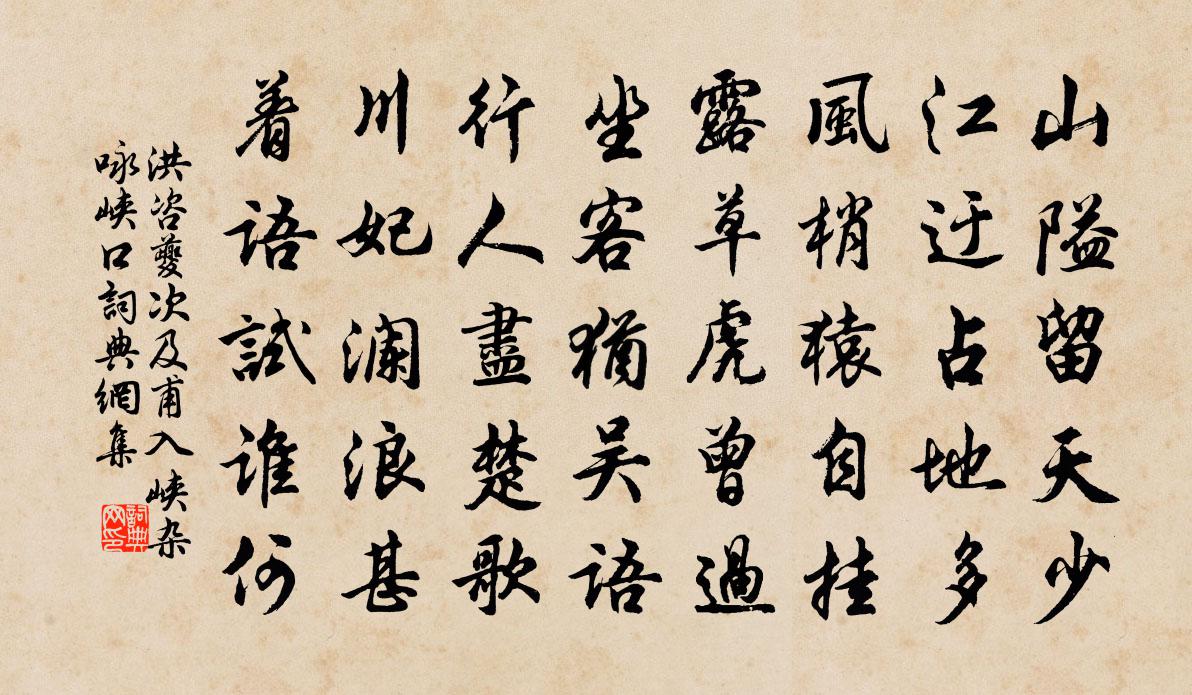 山隘留天少
江迂占地多
風梢猿自挂
露草虎曾過
坐客猶吴語
行人盡楚歌
川妃澜浪甚
着语試誰何
洪咨夔次及甫入峡杂
咏峡口詞典網集
詞典网印